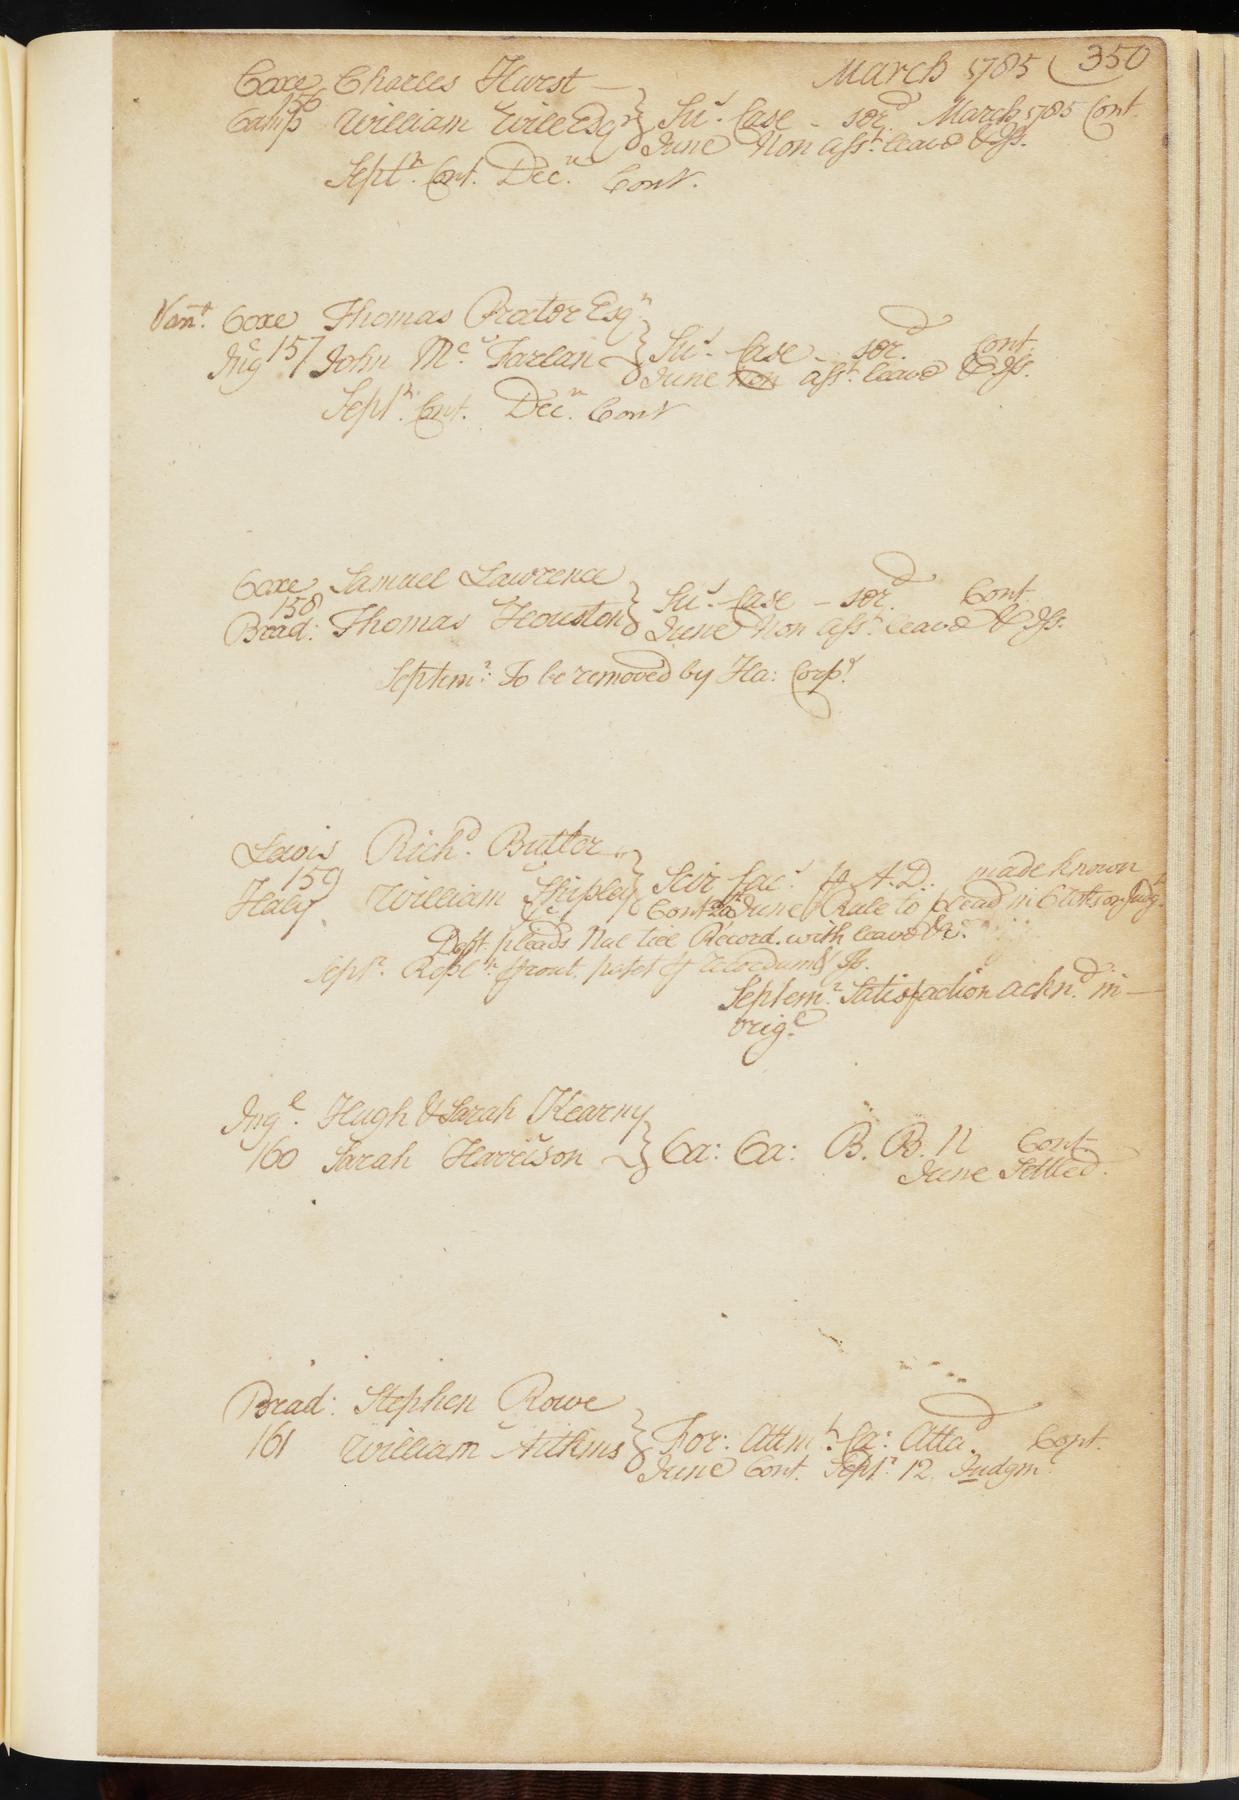 March 1785 350
Coxe Charles Hurst
156
Camp William Will Esqr } Su.s Case - sor.d March 1785 Cont.
June Non asst. leave & Iss.
Septr. Cont. Decr. Cont.
Vant. Coxe Thomas Proctor Esqr
Ing 157 John Mc. Farlan } Su.s Case - sor.d Cont.
June Non asst. leave & Iss.
Septr. Cont. Decr. Cont
Coxe Samuel Lawrence
158
Brad: Thomas Houston } Su.s Case - sor.d Cont.
June Non asst. leave & Iss.
Septemr. To be removed by Ha: Corps.
Lewis Richd. Butler
159
Haly William Shipley } Scir fac.s A. D. made known
Cont. June Rule to plead in 6 Wks or Judgt.
Deft. pleads Nul tiel Record. with leave &c.
Septr. Repln. prout patet recordum & Iss.
Septemr. Satisfaction acknd. in
origl.
Ingl. Hugh & Sarah Kearny
160 Sarah Harrison } Ca: Ca: B. B. 11 Cont.
June Settled.
Brad: Stephen Rowe
161 William Aitkins } For: Attmt. Ca: Attd. Cont.
June Cont. Septr. 12. Judgmt.